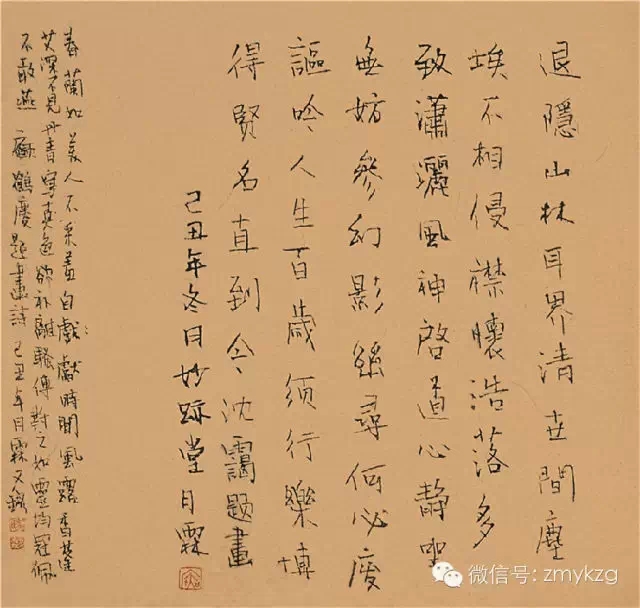 退隱山林耳界清世間塵
埃不相侵襟懷浩落多
致瀟灑風神啓道心靜
無妨參幻影尋何必廢
謳吟人生百歲須行樂博
得賢名直到今沈靄題畫
己丑年冬月妙跡堂月霖
春蘭如美人不采羞自獻時聞風露香蓬
艾深不見丹青寫真色欲補離騷傳對之如靈均冠佩
不敢燕鶴題畫詩己丑年月霖又錄
微信号: zmykzg